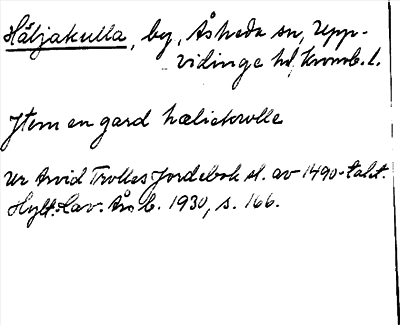 Håljakulla, by, Åsheda sn, Upp-
vidinge hd, Kronob. l.
Jtem en gard hæliekwlle
Ur Arvid Trolles Jordebok sl. av 1490-talet.
Hylt.-Cav. Årsb. 1930, s. 166.